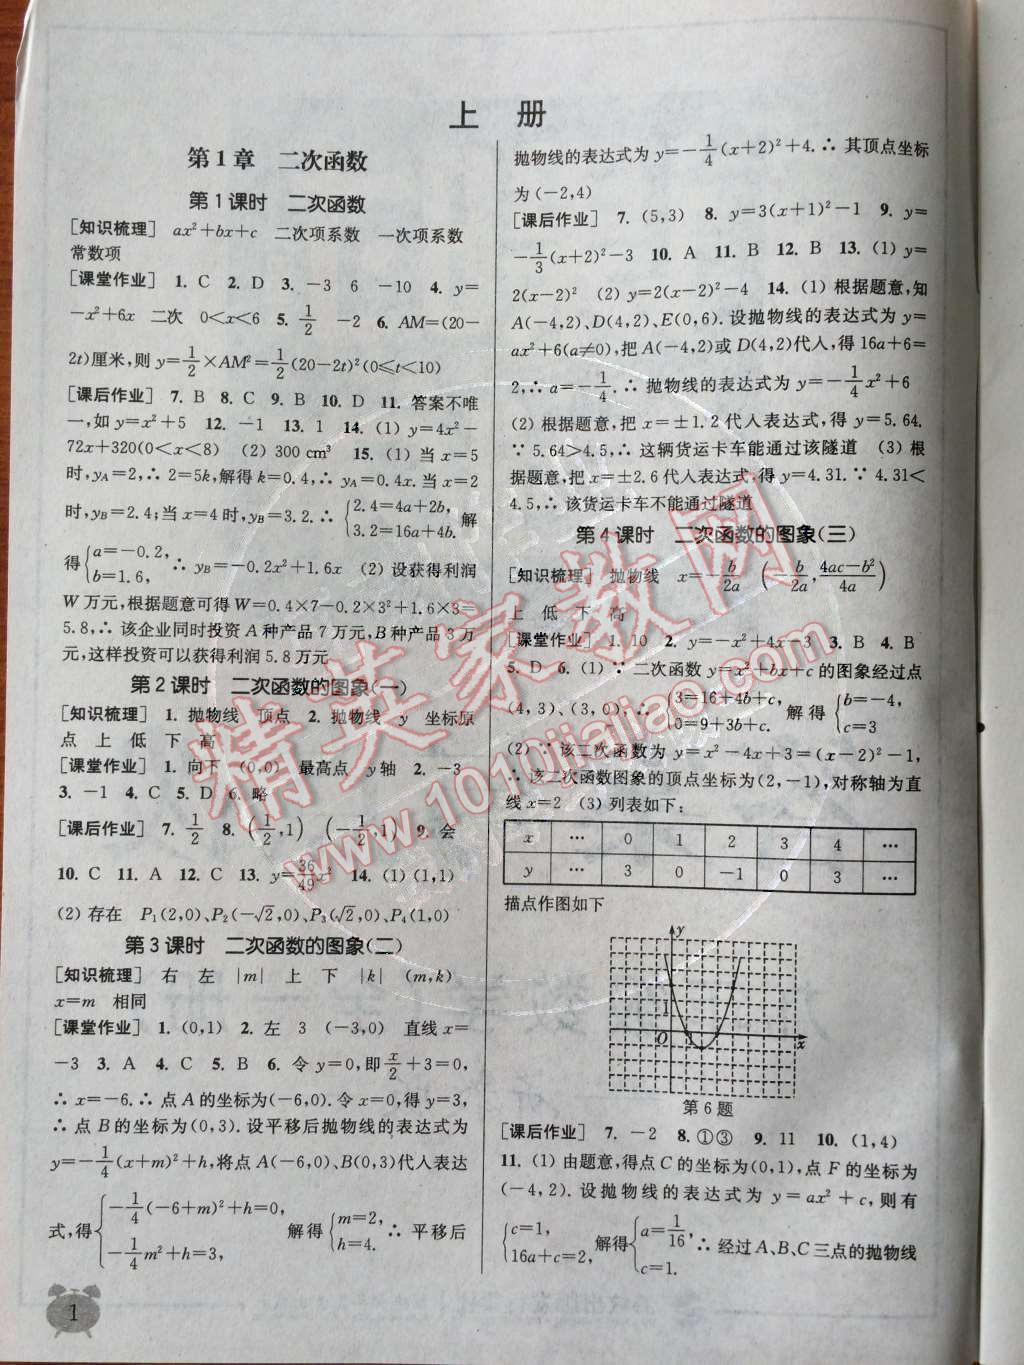 上 册
第1章 二次函数
第1课时 二次函数
[知识梳理] ax²+bx+c 二次项系数 一次项系数
常数项
[课堂作业] 1. C 2. D 3. -3 6 -10 4. y=
-x²+6x 二次 0<x<6 5. 1/2 -2 6. AM=(20-
2t)厘米,则 y=1/2×AM²=1/2(20-2t)²(0≤t≤10)
[课后作业] 7. B 8. C 9. B 10. D 11. 答案不唯
一,如 y=x²+5 12. -1 13. 1 14. (1) y=4x²-
72x+320(0<x<8) (2) 300 cm³ 15. (1) 当 x=5
时,yA=2,∴ 2=5k,解得 k=0.4,∴ yA=0.4x. 当 x=2
时,yB=2.4;当 x=4 时,yB=3.2. ∴ {2.4=4a+2b, 3.2=16a+4b. 解
得{a=-0.2, b=1.6, ∴ yB=-0.2x²+1.6x (2) 设获得利润
W 万元,根据题意可得 W=0.4×7-0.2×3²+1.6×3=
5.8,∴ 该企业同时投资 A 种产品 7 万元,B 种产品 3 万
元,这样投资可以获得利润 5.8 万元
第2课时 二次函数的图象(一)
[知识梳理] 1. 抛物线 顶点 2. 抛物线 y 坐标原
点 上 低 下 高
[课堂作业] 1. 向下 (0,0) 最高点 y轴 2. -3
3. -1 4. C 5. D 6. 略
[课后作业] 7. 1/2 8. (1/2,1) (-1/2,1) 9. 会
10. C 11. A 12. C 13. y=36/49x² 14. (1) (1,1)
(2) 存在 P₁(2,0)、P₂(-√2,0)、P₃(√2,0)、P₄(1,0)
第3课时 二次函数的图象(二)
[知识梳理] 右 左 |m| 上 下 |k| (m,k)
x=m 相同
[课堂作业] 1. (0,1) 2. 左 3 (-3,0) 直线 x=
-3 3. A 4. C 5. B 6. 令 y=0,即x/2+3=0,
∴ x=-6. ∴ 点 A 的坐标为(-6,0). 令 x=0,得 y=3,
∴ 点 B 的坐标为(0,3). 设平移后抛物线的表达式为
y=-1/4(x+m)²+h,将点 A(-6,0)、B(0,3)代人表达
式,得{-1/4(-6+m)²+h=0, -1/4m²+h=3, 解得{m=2, h=4. ∴ 平移后
抛物线的表达式为 y=-1/4(x+2)²+4. ∴ 其顶点坐标
为(-2,4)
[课后作业] 7. (5,3) 8. y=3(x+1)²-1 9. y=
-1/3(x+2)²-3 10. A 11. B 12. B 13. (1) y=
2(x-2)² (2) y=2(x-2)²-4 14. (1) 根据题意,知
A(-4,2)、D(4,2)、E(0,6). 设抛物线的表达式为 y=
ax²+6(a≠0),把 A(-4,2)或 D(4,2)代人,得 16a+6=
2,∴ a=-1/4. ∴ 抛物线的表达式为 y=-1/4x²+6
(2) 根据题意,把 x=±1.2 代人表达式,得 y=5.64.
∵ 5.64>4.5,∴ 这辆货运卡车能通过该隧道 (3) 根
据题意,把 x=±2.6 代人表达式,得 y=4.31. ∵ 4.31<
4.5,∴ 该货运卡车不能通过隧道
第4课时 二次函数的图象(三)
[知识梳理] 抛物线 x=-b/2a (-b/2a, (4ac-b²)/4a)
上 低 下 高
[课堂作业] 1. 10 2. y=-x²+4x-3 3. B 4. B
5. D 6. (1) ∵ 二次函数 y=x²+bx+c 的图象经过点
(4,3)、(3,0),∴ {3=16+4b+c, 0=9+3b+c. 解得{b=-4, c=3
(2) ∵ 该二次函数为 y=x²-4x+3=(x-2)²-1,
∴ 该二次函数图象的顶点坐标为(2,-1),对称轴为直
线 x=2 (3) 列表如下:
x … 0 1 2 3 4 …
y … 3 0 -1 0 3 …
描点作图如下
y
1
O 1 x
第6题
[课后作业] 7. -2 8. ①③ 9. 11 10. (1,4)
11. (1) 由题意,得点 C 的坐标为(0,1),点 F 的坐标为
(-4,2). 设抛物线的表达式为 y=ax²+c,则有
{c=1, 16a+c=2. 解得{a=1/16, c=1. ∴ 经过 A、B、C 三点的抛物线
1
精英家教网
www.1010jiajiao.com